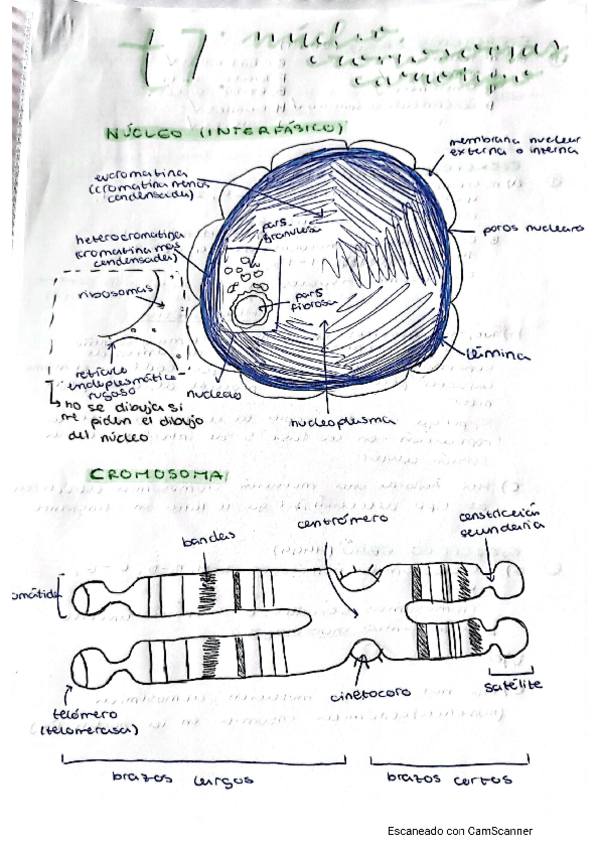 t7 núcleo,
cromosomas,
cariotipo
NÚCLEO (INTERFÁSICO)
membrana nuclear
externa o interna
eucromatina
(cromatina menos
condensada)
poros nucleares
pars
granulosa
heterocromatina
(cromatina mas
condensada)
ribosomas
pars
fibrosa
lámina
retículo
endoplasmático
rugoso
nucleolo
↳ no se dibuja si
me piden el dibujo
del núcleo
nucleoplasma
CROMOSOMA
bandas
centrómero
constricción
secundaria
omátida
cinetocoro
satélite
telómero
(telomerasa)
brazos largos
brazos cortos
Escaneado con CamScanner